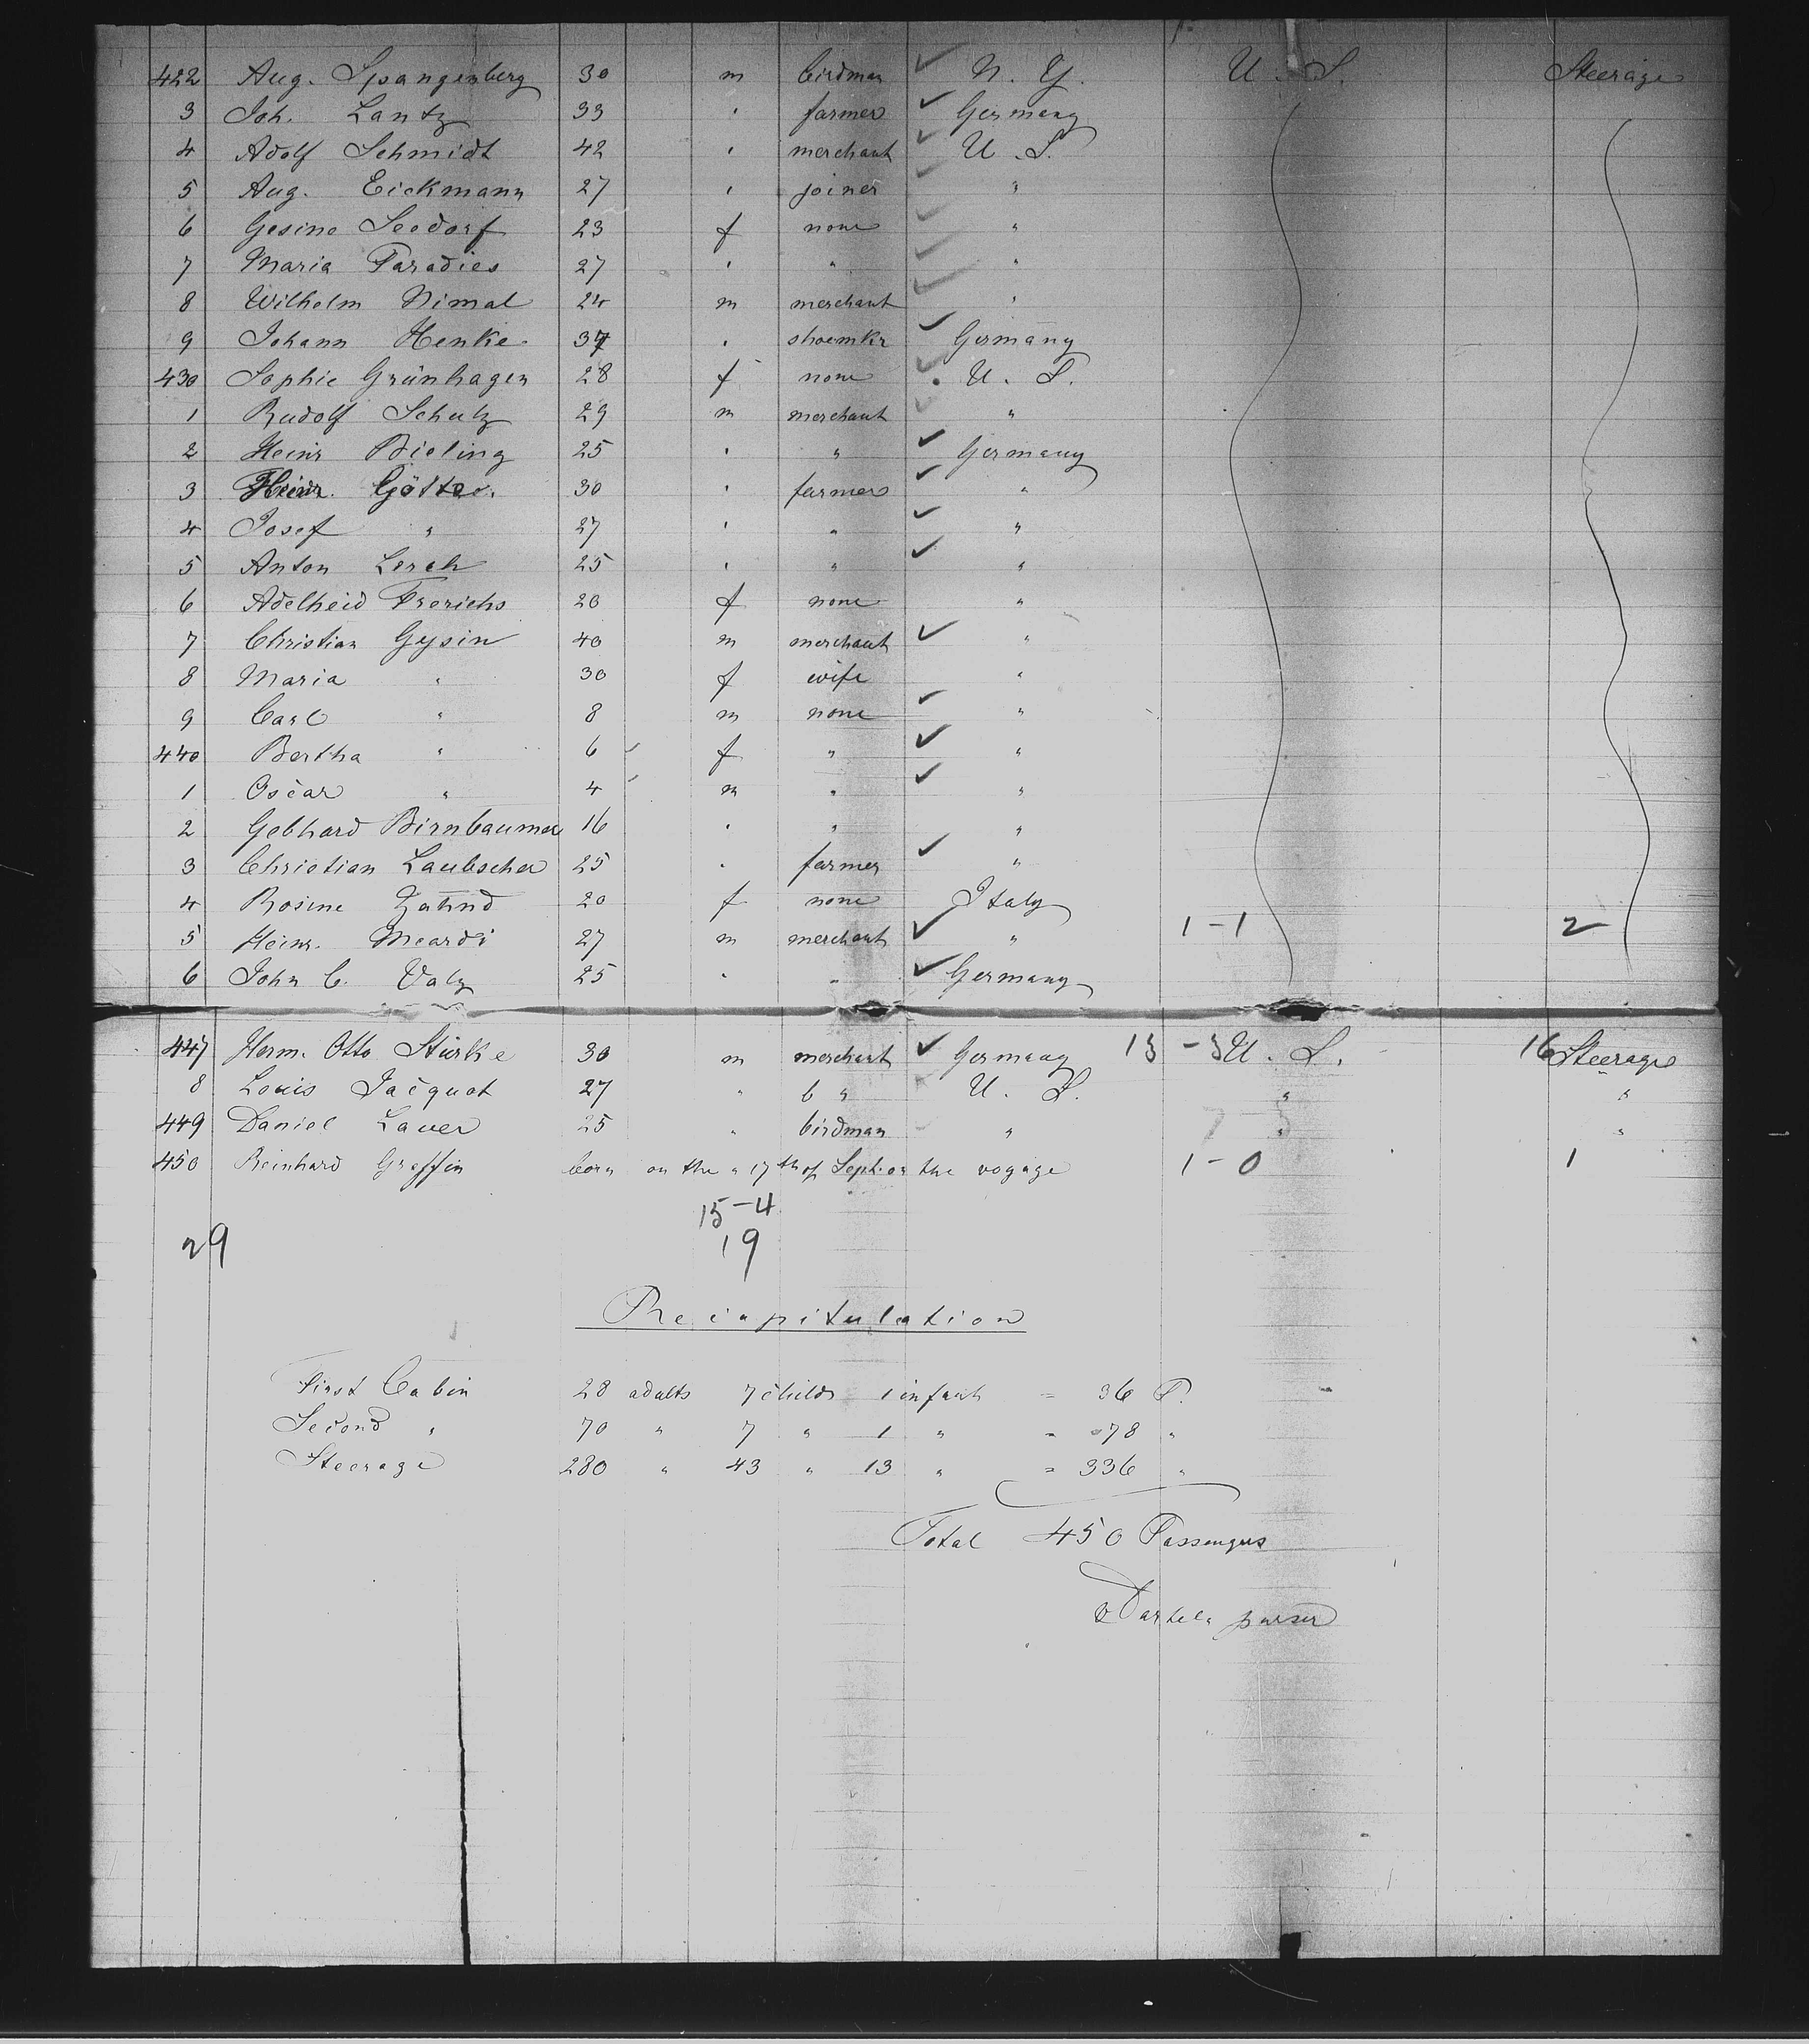 422 Aug. Spangenberg 30 m birdman ✓ N. Y. U. S. Steerage
3 Joh. Lantz 33 " farmer ✓ Germany
4 Adolf Schmidt 42 " merchant ✓ U. S.
5 Aug. Eickmann 27 " joiner ✓ "
6 Gesine Seedorf 23 f none ✓ "
7 Maria Paradies 27 " " ✓ "
8 Wilhelm Nimal 24 m merchant ✓ "
9 Johann Henke 37 " shoemkr ✓ Germany
430 Sophie Grünhagen 28 f none ✓ U. S.
1 Rudolf Schulz 29 m merchant ✓ "
2 Heinr Bieling 25 " " ✓ Germany
3 Heinr. Götze 30 " farmer ✓ "
4 Josef " 27 " " ✓ "
5 Anton Lerch 25 " " ✓ "
6 Adelheid Frerichs 20 f none "
7 Christian Gysin 40 m merchant ✓ "
8 Maria " 30 f wife "
9 Carl " 8 m none ✓ "
440 Bertha " 6 f " ✓ "
1 Oscar " 4 m " ✓ "
2 Gebhard Birnbaumer 16 " " "
3 Christian Laubscher 25 " farmer ✓ "
4 Rosine Zahnd 20 f none Italy
5 Heinr. Meardi 27 m merchant ✓ " 1-1 2
6 John C. Valz 25 " " ✓ Germany
447 Herm. Otto Stürke 30 m merchant ✓ Germany 13-3 U. S. 16 Steerage
8 Louis Jacquot 27 " " U. S. " "
449 Daniel Lauer 25 " birdman " " "
450 Reinhard Greffin born on the 17th of Sept. on the voyage 1-0 1
15-4
29 19
Recapitulation
First Cabin 28 adults 7 childr 1 infant = 36 P.
Second " 70 " 7 " 1 " = 78 "
Steerage 280 " 43 " 13 " = 336 "
Total 450 Passengers
purser